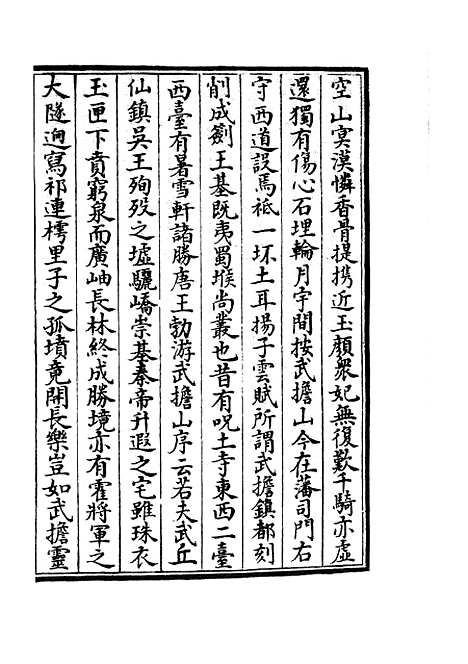 空山寞漠憐香骨提携近玉顏衆妃無復歎千騎亦虛
還獨有傷心石埋輪月宇間按武擔山今在藩司門右
守西道設馬祗一坏土耳揚子雲賦所謂武擔鎮都刻
削成劉王基既夷蜀堠尚叢也昔有呪土寺東西二臺
西臺有暑雪軒諸勝唐王勃游武擔山序云若夫武丘
仙鎮吳王殉歿之墟驪嶠崇基秦帝升遐之宅雖珠衣
玉匣下賁窮泉而廣岫長林終成勝境亦有霍將軍之
大隧迥寫祁連樗里子之孤墳竟開長樂豈如武擔靈